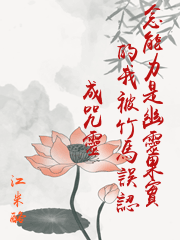 念能力是幽靈果實
的我被竹馬誤認
成咒靈
江米酪